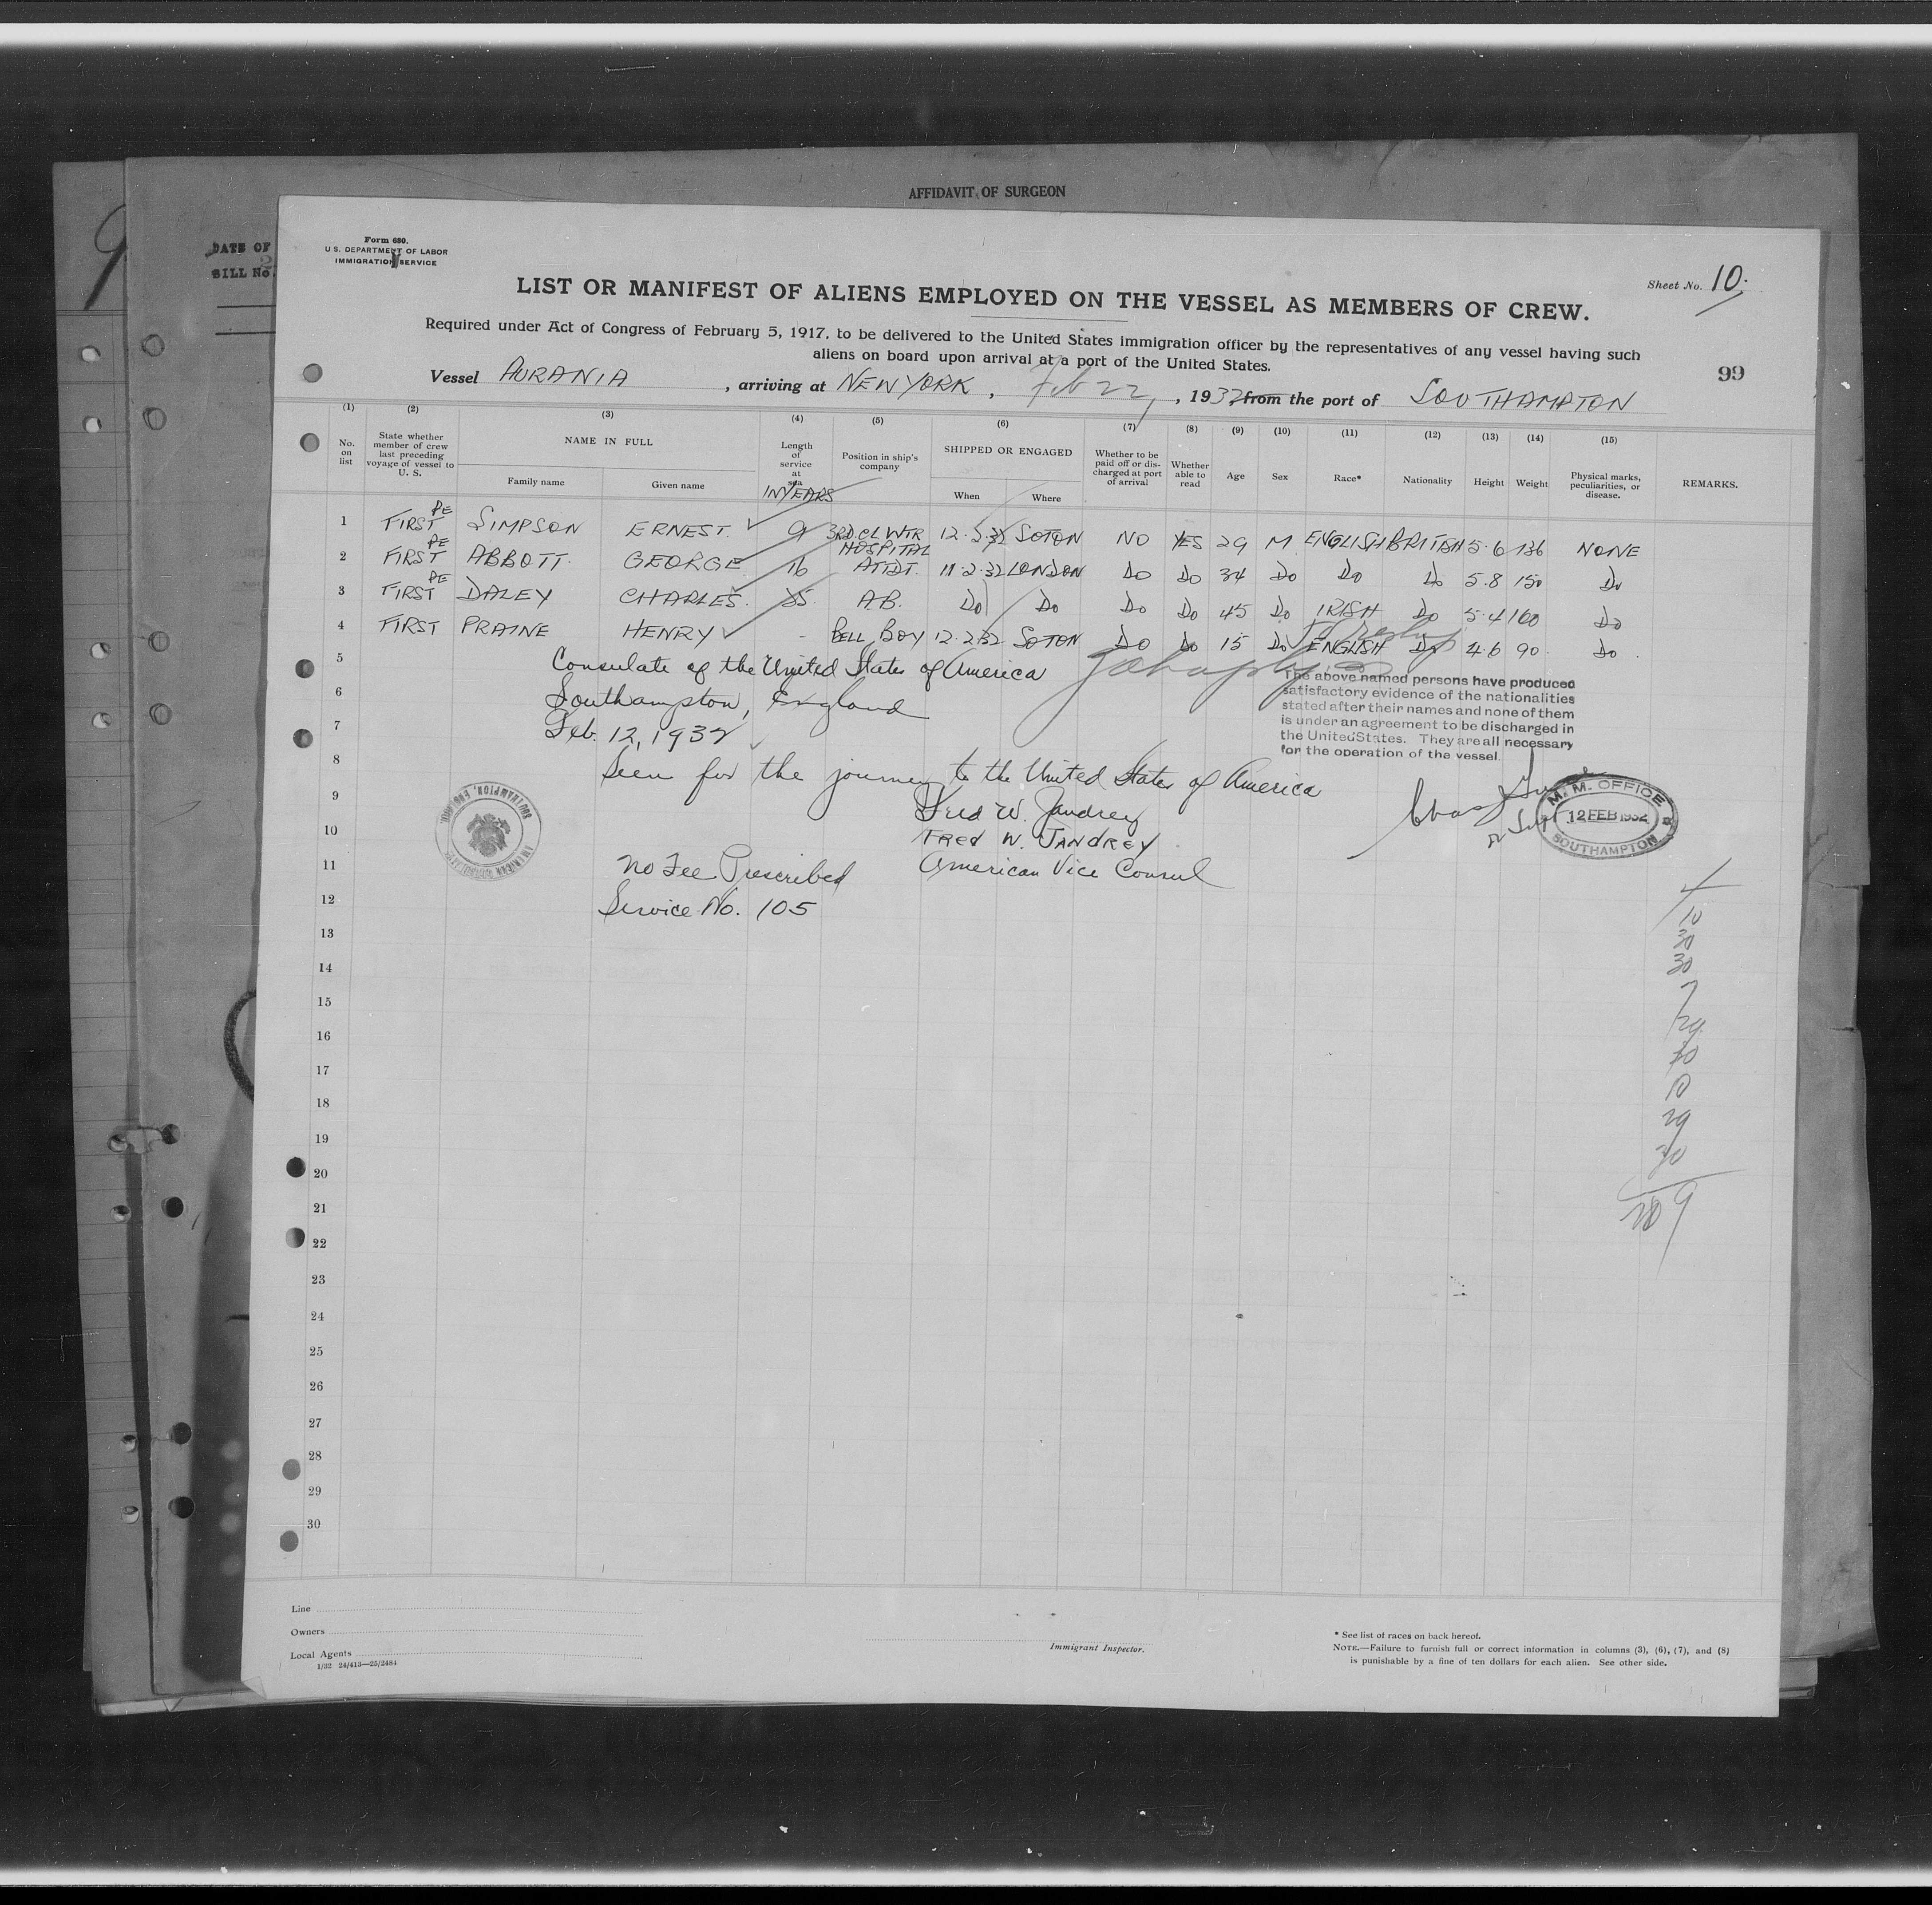 AFFIDAVIT OF SURGEON
DATE OF
BILL No.
Form 680.
U.S. DEPARTMENT OF LABOR
IMMIGRATION SERVICE
Sheet No. 10.
LIST OR MANIFEST OF ALIENS EMPLOYED ON THE VESSEL AS MEMBERS OF CREW.
Required under Act of Congress of February 5, 1917, to be delivered to the United States immigration officer by the representatives of any vessel having such
aliens on board upon arrival at a port of the United States.
99
Vessel AURANIA, arriving at NEW YORK, Feb 22, 1932 from the port of SOUTHAMPTON
(1) (2) (3) (4) (5) (6) (7) (8) (9) (10) (11) (12) (13) (14) (15)
No. on list
State whether member of crew last preceding voyage of vessel to U. S.
NAME IN FULL
Family name
Given name
Length of service at sea
IN YEARS
Position in ship's company
SHIPPED OR ENGAGED
When
Where
Whether to be paid off or discharged at port of arrival
Whether able to read
Age
Sex
Race*
Nationality
Height
Weight
Physical marks, peculiarities, or disease.
REMARKS.
1 FIRST PE SIMPSON ERNEST. 9 3RD.CL WTR 12.2.32 SOTON NO YES 29 M ENGLISH BRITISH 5.6 136 NONE
2 FIRST PE ABBOTT. GEORGE 16 HOSPITAL ATTDT. 11.2.32 LONDON DO DO 34 DO DO DO 5.8 150 DO
3 FIRST PE DALEY CHARLES. 25. A.B. DO DO DO DO 45 DO IRISH DO 5.4 160 DO
4 FIRST PRAINE HENRY - BELL BOY 12.2.32 SOTON DO DO 15 DO ENGLISH DO 4.6 90. DO.
5 Consulate of the United States of America
6 Southampton, England
7 Feb. 12, 1932
The above named persons have produced
satisfactory evidence of the nationalities
stated after their names and none of them
is under an agreement to be discharged in
the United States. They are all necessary
for the operation of the vessel.
8 Seen for the journey to the United States of America
9 Fred W. Jandrey
10 FRED W. JANDREY
11 No Fee Prescribed American Vice Consul
12 Service No. 105
M. M. OFFICE
12 FEB 1932
SOUTHAMPTON
AMERICAN CONSULATE
SOUTHAMPTON, ENGLAND.
13
14
15
16
17
18
19
20
21
22
23
24
25
26
27
28
29
30
4
10
30
30
7
29
30
10
29
30
209
Line
Owners
Local Agents
1/32 24/413—25/2484
Immigrant Inspector.
* See list of races on back hereof.
NOTE.—Failure to furnish full or correct information in columns (3), (6), (7), and (8)
is punishable by a fine of ten dollars for each alien. See other side.